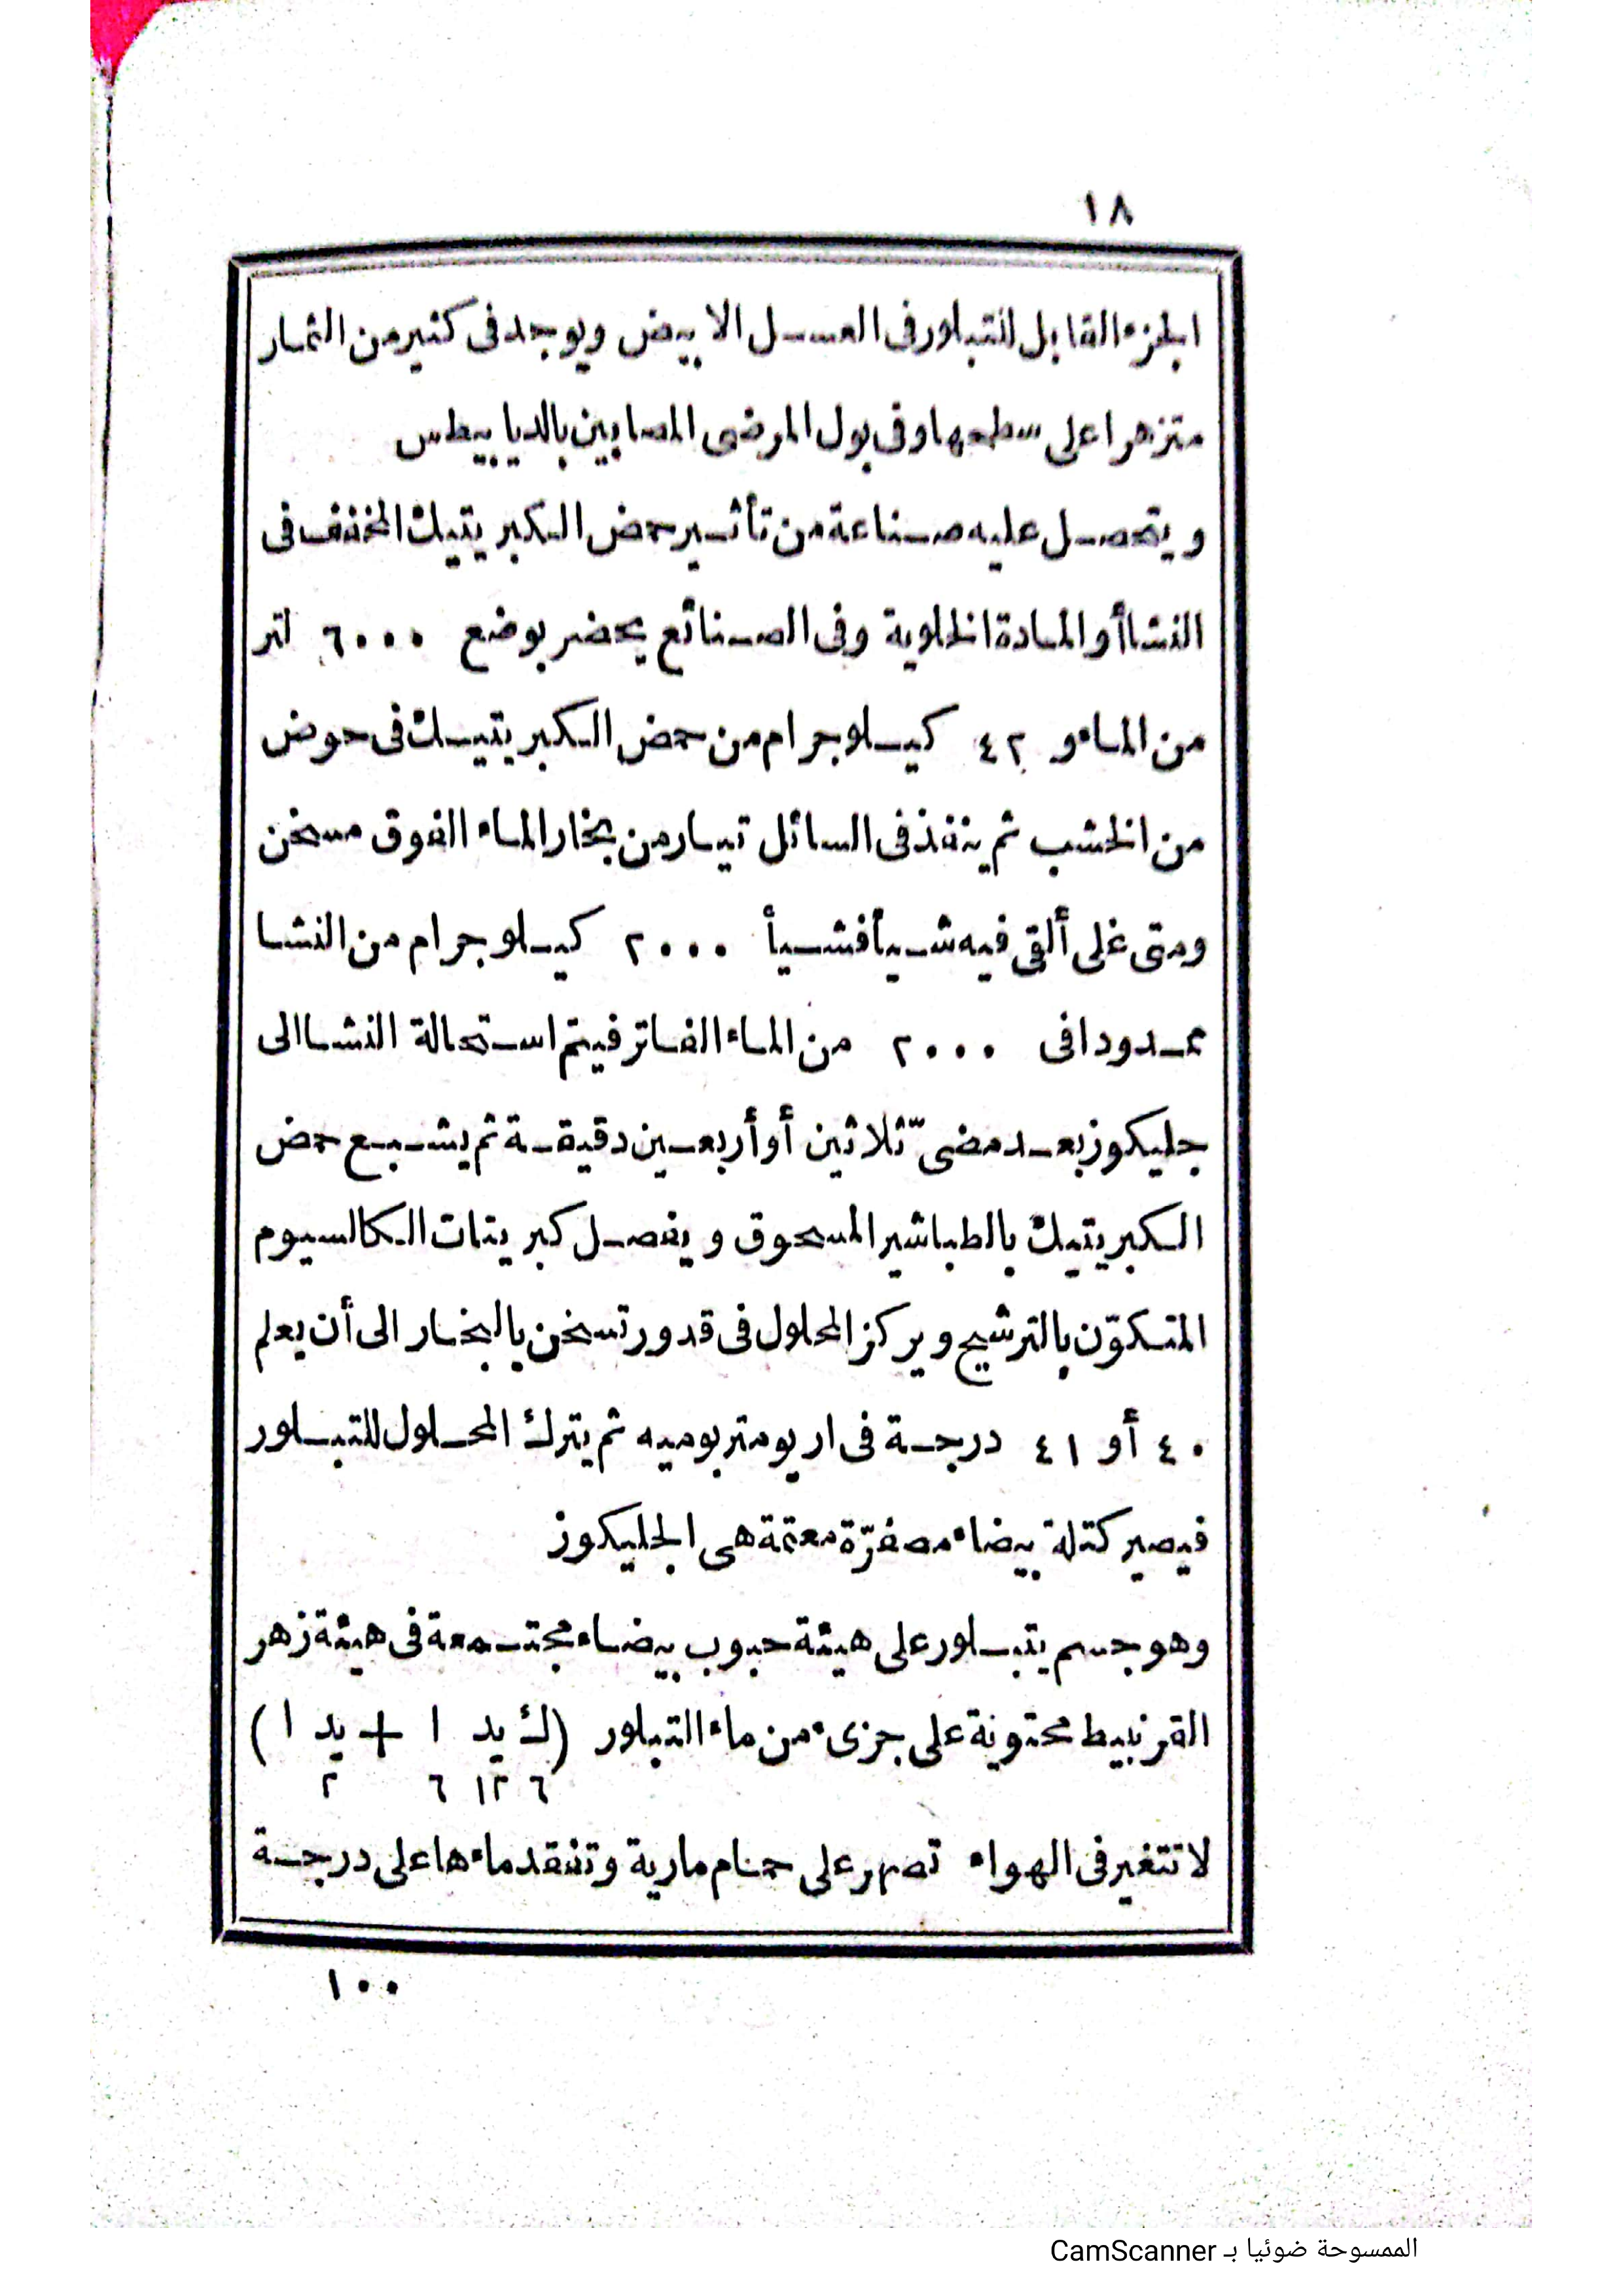 ١٨
الجزء القابل للتبلور فى العسل الابيض ويوجد فى كثير من الثمار
متزهرا على سطحها وفى بول المرضى المصابين بالديابيطس
ويتحصل عليه صناعة من تأثير حمض الكبريتيك المخفف فى
النشا أو المادة الخلوية وفى الصنائع يحضر بوضع ٦٠٠٠ لتر
من الماء و ٤٢ كيلوجرام من حمض الكبريتيك فى حوض
من الخشب ثم ينفذ فى السائل تيار من بخار الماء الفوق مسخن
ومتى غلى ألقى فيه شيأ فشيأ ٢٠٠٠ كيلوجرام من النشا
ممدودا فى ٢٠٠٠ من الماء الفاتر فيتم استحالة النشا الى
جليكوز بعد مضىّ ثلاثين أو أربعين دقيقة ثم يشبع حمض
الكبريتيك بالطباشير المسحوق ويفصل كبريتات الكالسيوم
المتكوّن بالترشيح ويركز المحلول فى قدور تسخن بالبخار الى أن يعلم
٤٠ أو ٤١ درجة فى اريومتر بوميه ثم يترك المحلول للتبلور
فيصير كتلة بيضاء مصفرّة معتمة هى الجليكوز
وهو جسم يتبلور على هيئة حبوب بيضاء مجتمعة فى هيئة زهر
القرنبيط محتوية على جزىء من ماء التبلور (ك يد ا + يد ا)
٦ ١٢ ٦ ٢
لا تتغير فى الهواء تصهر على حمام مارية وتفقد ماءها على درجة
١٠٠
الممسوحة ضوئيا بـ CamScanner